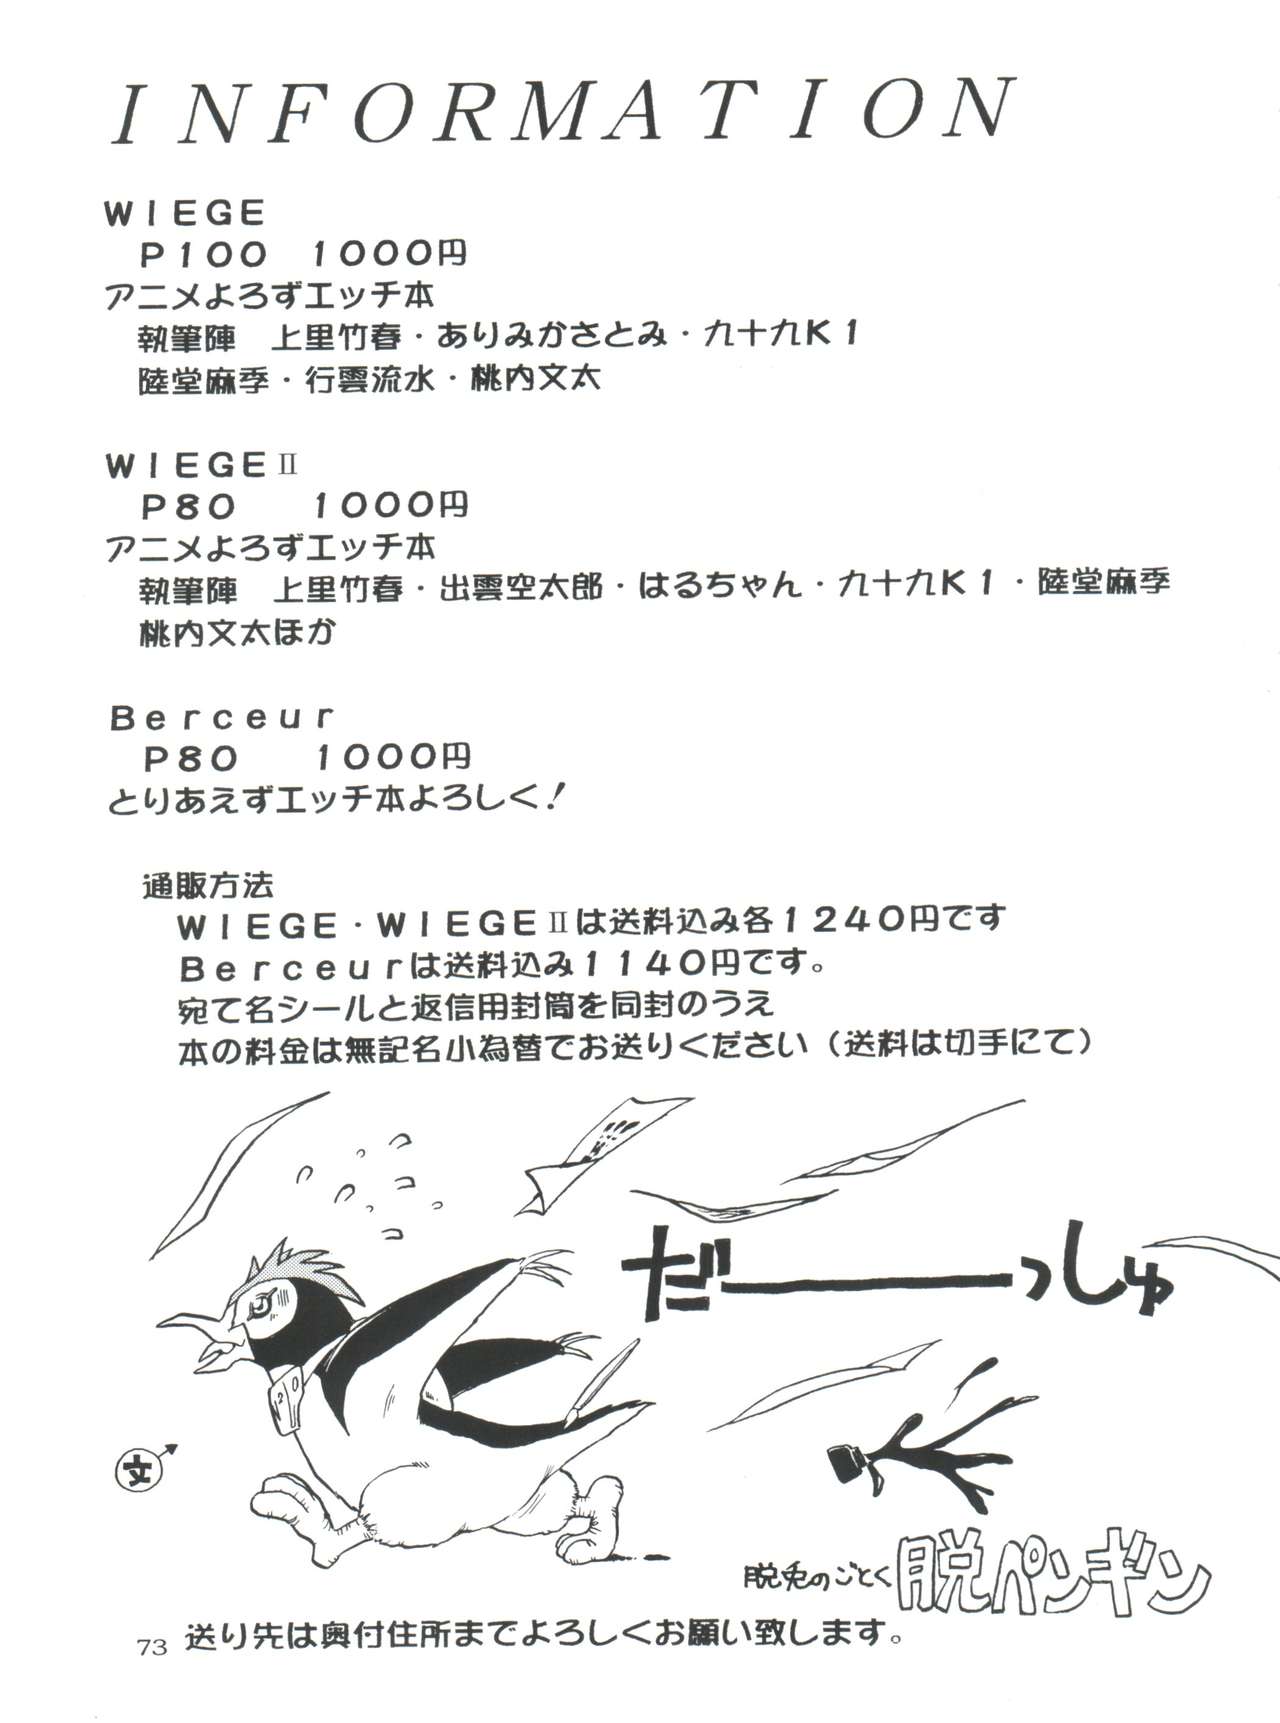 INFORMATION
WIEGE
P100 1000円
アニメよろずエッチ本
執筆陣 上里竹春・ありみかさとみ・九十九K1
陸堂麻季・行雲流水・桃内文太
WIEGEⅡ
P80 1000円
アニメよろずエッチ本
執筆陣 上里竹春・出雲空太郎・はるちゃん・九十九K1・陸堂麻季
桃内文太ほか
Berceur
P80 1000円
とりあえずエッチ本よろしく!
通販方法
WIEGE・WIEGEⅡは送料込み各1240円です
Berceurは送料込み1140円です。
宛て名シールと返信用封筒を同封のうえ
本の料金は無記名小為替でお送りください(送料は切手にて)
だーーっしゅ
文
脱兎のごとく脱ペンギン
73 送り先は奥付住所までよろしくお願い致します。